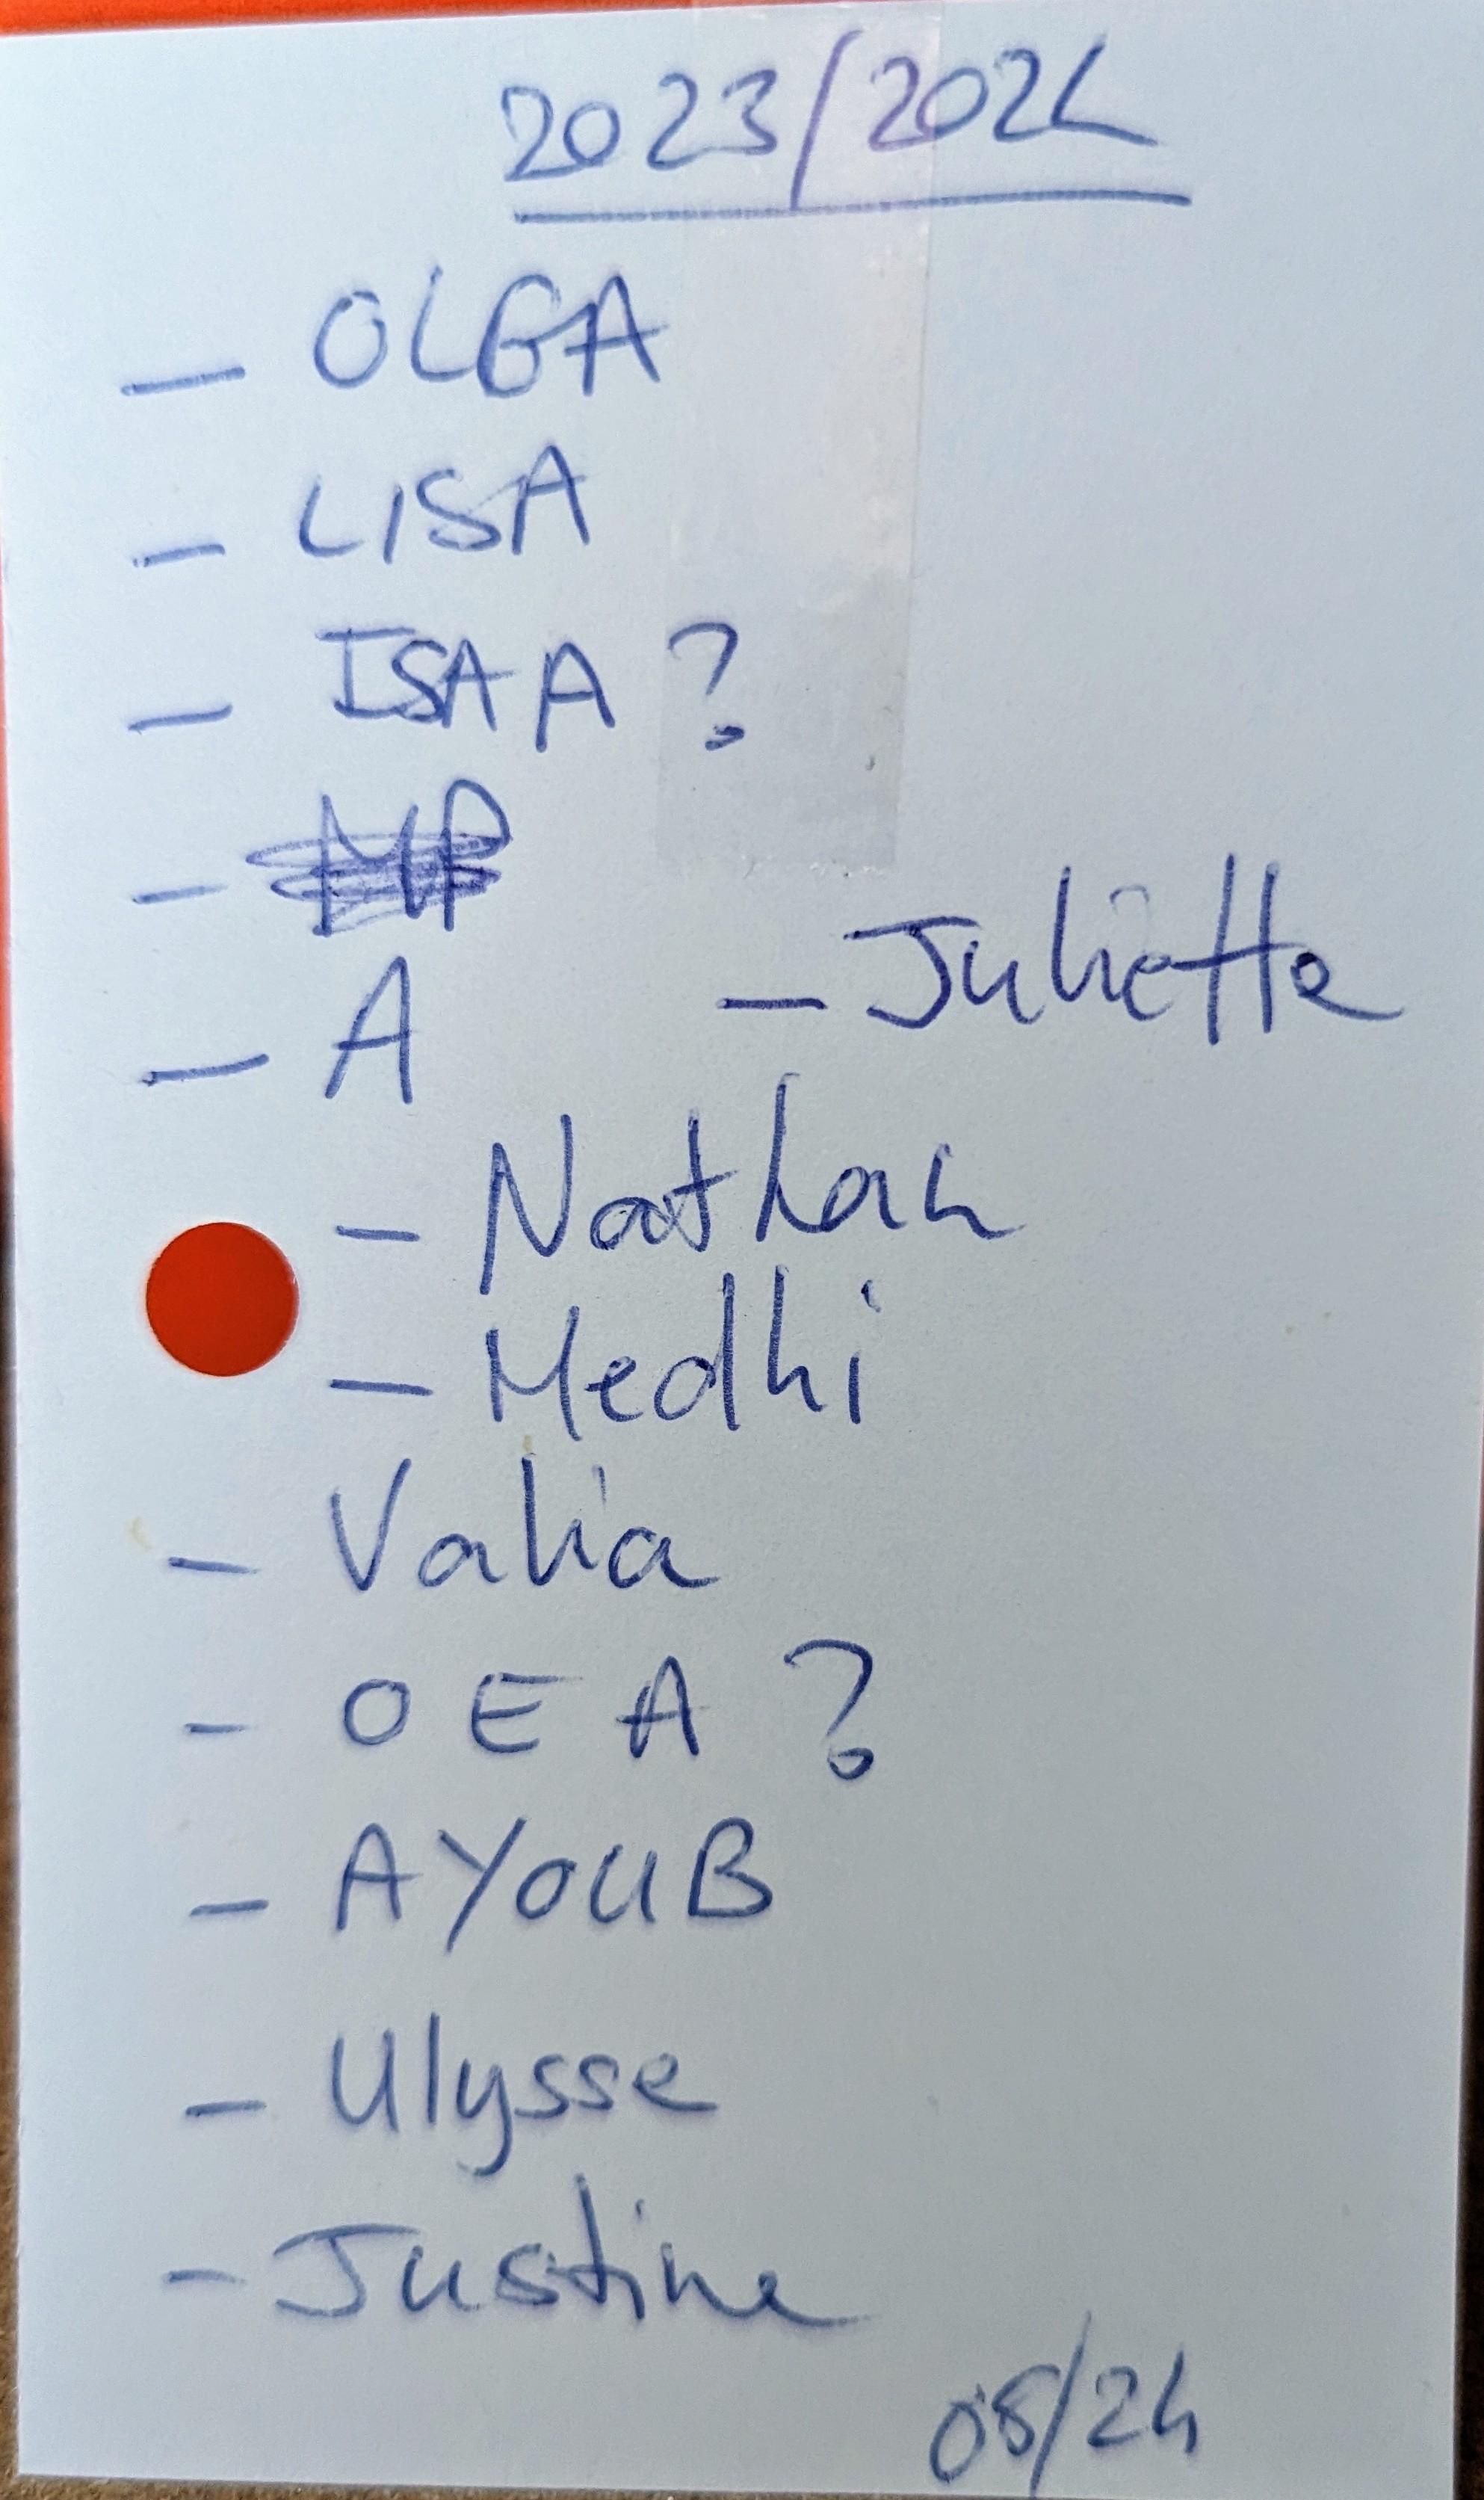 2023/2024
- OLGA
- LISA
- ISAA A ?
-
- A
- Juliette
- Nathan
- Medhi
- Valia
- O E A ?
- AYOUB
- Ulysse
- Justine
08/24